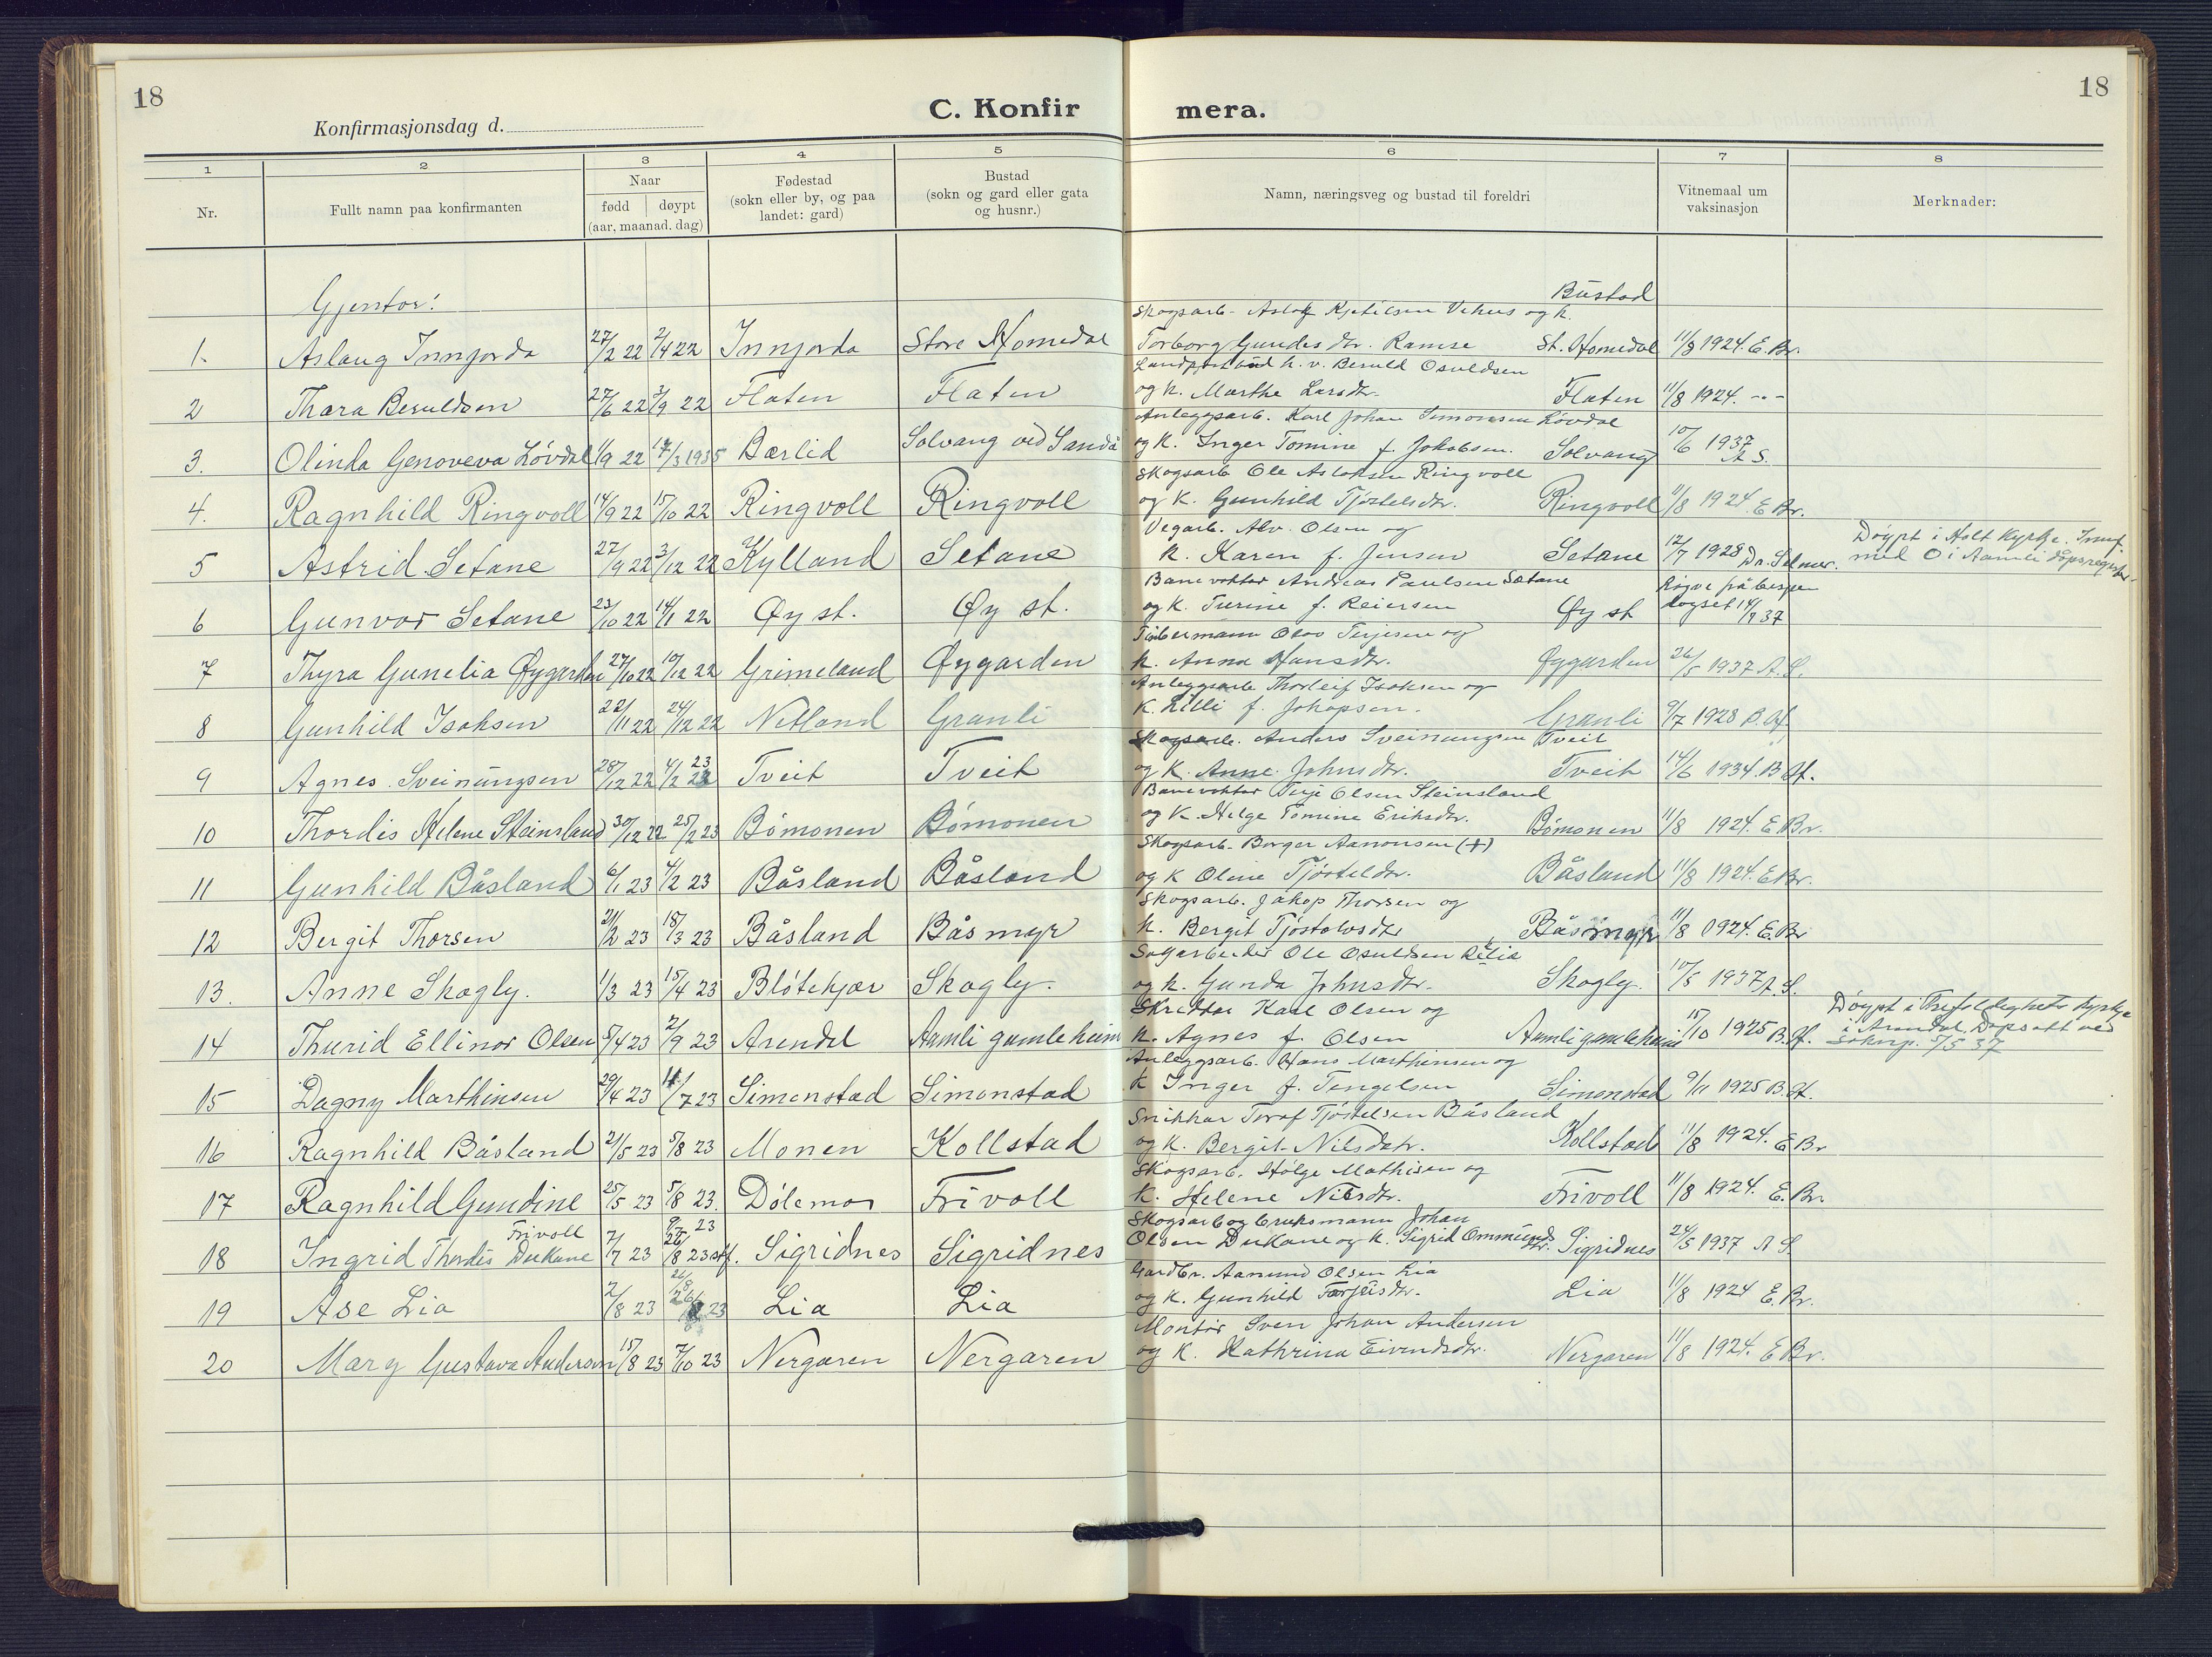 18
C. Konfir mera.
18
Konfirmasjonsdag d.
1 2 3 4 5 6 7 8
Nr.
Fullt namn paa konfirmanten
Naar
fødd døypt
(aar, maanad. dag)
Fødestad
(sokn eller by, og paa
landet: gard)
Bustad
(sokn og gard eller gata
og husnr.)
Namn, næringsveg og bustad til foreldri
Vitnemaal um
vaksinasjon
Merknader:
Gjentor:
Bustad
Skogsarb. Aslak Kjetilsen Vehus og k.
1. Aslaug Innjorda 27/2 22 2/4 22 Innjorda Store Homedal Torborg Gundesdtr. Ramse St. Homedal 11/8 1924. E. Br.
Landpostbud h. v. Beruld Osuldsen
2 Thora Beruldsen 27/6 22 3/9 22 Flaten Flaten og k. Marthe Larsdtr. Flaten 11/8 1924. - " -
Anleggsarb. Karl Johan Simonsen Lövdal
3. Olinda Genoveva Lövdal 1/9 22 17/3 1935 Bærlid Solvang ved Sandå og k. Inger Tomine f. Jakobsen. Solvang 10/6 1937 A S.
Skogsarb Ole Aslaksen Ringvoll
4. Ragnhild Ringvoll 14/9 22 15/10 22 Ringvoll Ringvoll og k. Gunhild Tjöstelsdtr. Ringvoll 11/8 1924 E Br.
Vegarb. Alv. Olsen og
5 Astrid Setane 27/9 22 3/12 22 Kylland Setane k. Karen f. Jensen Setane 12/7 1928 Dr. Selmer. Döypt i Holt kyrkje. Innf.
med O i Aamli döpsregister.
Banevoktar Andreas Paulsen Sætane
6 Gunvor Setane 23/10 22 14/1 22 Øy st. Øy st. og k. Turine f. Reiersen Øy st 14/9 37
Timbermann Olav Terjesen og
7 Thyra Gunelia Øygarden 27/10 22 10/12 22 Grimeland Øygarden k. Anna Hansdtr. Øygarden 26/5 1937 A. S.
Anleggsarb Thorleif Isaksen og
8 Gunhild Isaksen 22/11 22 24/12 22 Netland Granli k. Lilli f. Johansen. Granli 9/7 1928 B. Af.
Skogsarb. Anders Sveinungsen Tveit
9 Agnes Sveinungsen 28/12 22 4/2 23 Tveit Tveit og k. Anne Johnsdtr. Tveit 14/6 1934. B Af.
Banevoktar Terje Olsen Steinsland
10 Thordis Helene Steinsland 30/12 22 25/2 23 Bömonen Bömonen og k. Helge Tomine Eriksdtr. Bömonen 11/8 1924. E. Br.
Skogsarb. Borger Aanonsen (+)
11 Gunhild Båsland 6/1 23 4/2 23 Båsland Båsland og k Oline Tjösteldtr. Båsland 11/8 1924. E. Br.
Skogsarb. Jakop Thorsen og
12 Bergit Thorsen 21/2 23 18/3 23 Båsland Båsmyr k. Bergit Tjöstolvsdtr Båsmyr 11/8 1924. E. Br
Sagarbeider Ole Osuldsen
13. Anne Skogly. 1/3 23 15/4 23 Blötekjær Skogly. og k. Gunda Johnsdtr. Skogly 10/5 1937 A. S.
Skreddar Karl Olsen og
14 Thurid Ellinor Olsen 5/4 23 2/9 23 Arendal Aamli gamleheim k. Agnes f. Olsen Aamli gamleheim 15/10 1925 B. Af. Döypt i Trefoldighets kyrkje
i Arendal. Dåpsatt ved
soknp. 5/5 37
Anleggsarb. Hans Marthinsen og
15 Dagny Marthinsen 29/4 23 11/7 23 Simonstad Simonstad k Inger f. Tengelsen Simonstad 9/11 1925 B. Af.
Snikkar Toraf Tjöstelsen Båsland
16 Ragnhild Båsland 21/5 23 5/8 23 Monen Kollstad og k. Bergit Nilsdatr. Kollstad 11/8 1924. E Br
Skogsarb. Helge Mathisen og
17 Ragnhild Gundine 25/5 23 5/8 23. Dölemo Frivoll k. Helene Nilsdtr. Frivoll 11/8 1924. E. Br.
Frivoll
Skogsarb og bruksmann Johan
18 Ingrid Thordis Dukane 7/7 23 26/8 23 stf. Sigridnes Sigridnes Olsen Dukane og k. Sigrid Ommundsdtr. Sigridnes 24/5 1937 A S
Gardbr. Aanund Olsen Lia
19 Åse Lia 2/8 23 26/8 23 Lia Lia og k. Gunhild Tarjeisdtr. Lia 11/8 1924 E. Br.
Montör Sven Johan Andersen
20 Mary Gustava Andersen 15/8 23 7/10 23 Nergaren Nergaren og k. Kathrina Eivindsdtr. Nergaren 11/8 1924. E Br.